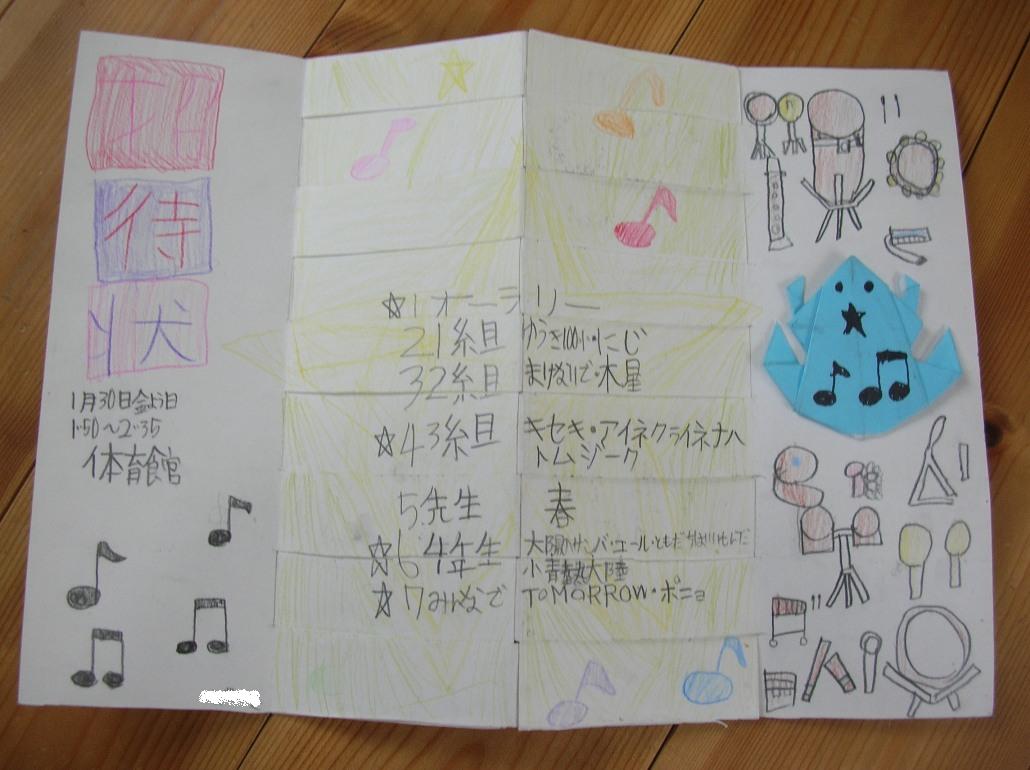 招
待
状
1月30日金よう日
1:50〜2:35
体育館
☆1 オーラリー
2 1組 ゆうき100%・にじ
3 2組 まけないで・木星
☆4 3組 キセキ・アイネクライネナハ
トムジーク
5 先生 春
☆6 4年生 大陽のサンバ・エール・ともだちはいいもんだ
情熱大陸
☆7 みんなで TOMORROW・ポニョ